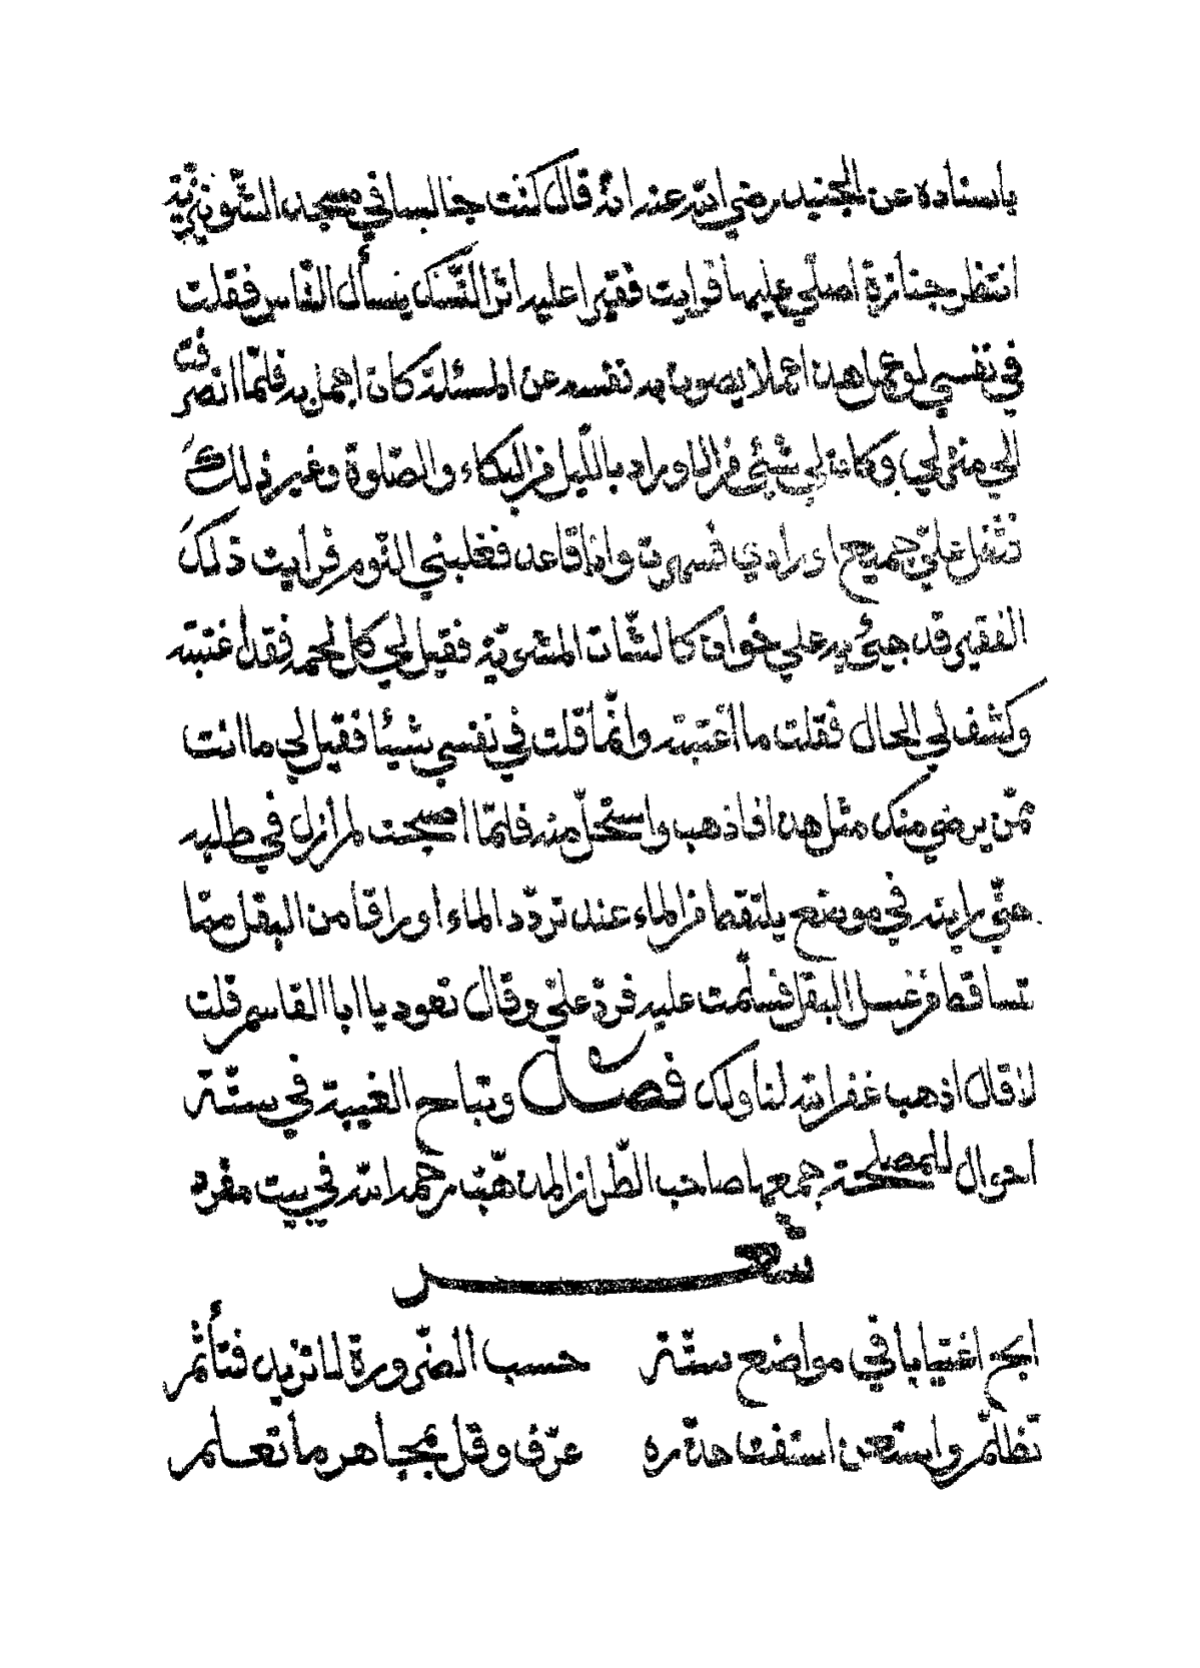 باسناده عن الجنيد رضي الله عنه انه قال كنت جالسا في مسجد الشونيزية
انتظر جنازة اصلي عليها فرايت فقيرا عليه اثر النسك يسأل الناس فقلت
في نفسي لو عمل هذا عملا يصون به نفسه عن المسئلة كان اجمل به فلمّا انصرفت
الي منزلي وكان لي شيئ من الاوراد بالليل من البكاء والصّلوة وغير ذلك
فثقل عليّ جميع اورادي فسهرت وانا قاعد فغلبني النّوم فرأيت ذلك
الفقير قد جيئ به علي خوان كالشّاة المشويّة فقيل لي كل لحمه فقد اغتبته
وكشف لي الحال فقلت ما اغتبته وانّما قلت في نفسي شيئا فقيل لي ما انت
ممّن يرضي منك مثل هذا فاذهب واستحلّ منه فلمّا اصبحت لم ازل في طلبه
حتّي رايته في موضع يلتقط من الماء عند تردّد الماء اوراقا من البقل ممّا
تساقط من غسل البقل فسلّمت عليه فردّ عليّ وقال تعود يا ابا القاسم قلت
لا قال اذهب غفر الله لنا ولك فصل وتباح الغيبة في ستّة
احوال للمصلحة جمعها صاحب الطّراز المذهّب رحمه الله في بيت مفرد
شعر
ابح اغتيابا في مواضع ستّة حسب الضّرورة لا تزيد فتأثم
تظلّم واستعن استفت حذّره عرّف وقل بمجاهر ما تعلم